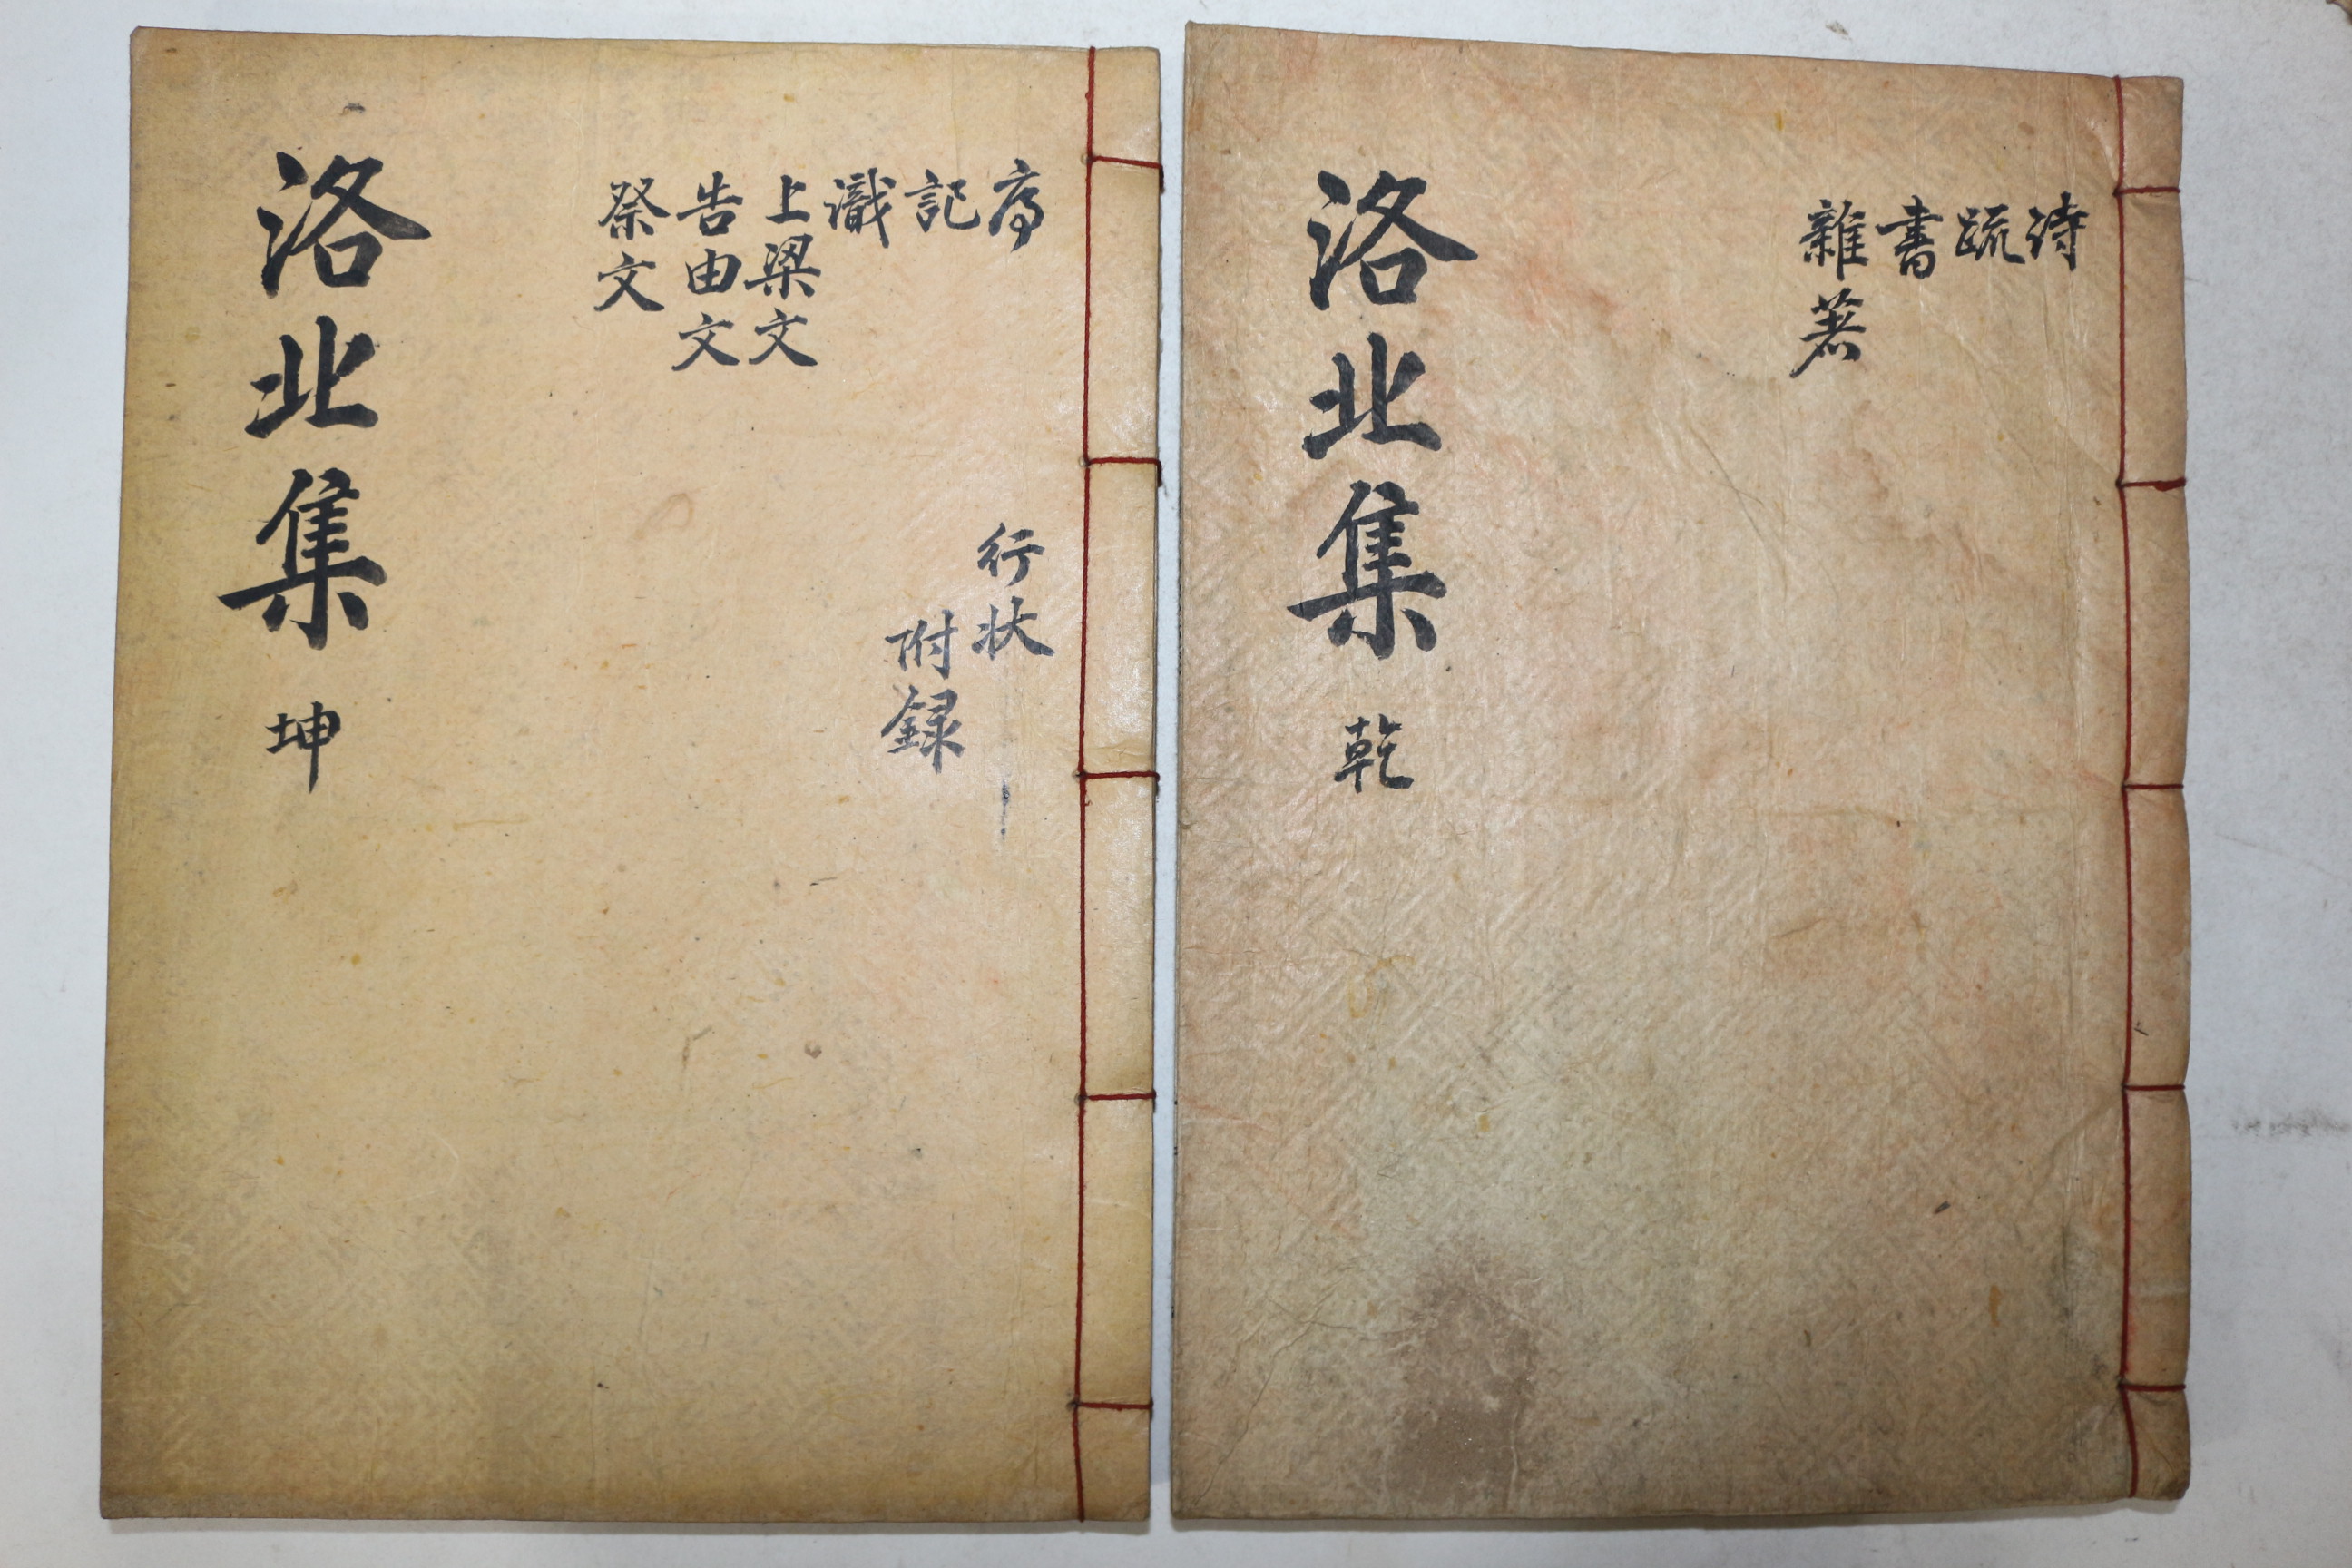 詩
疏
書
雜著
洛北集 乾
序
記
識
上梁文
告由文
祭文
行狀
附録
洛北集 坤